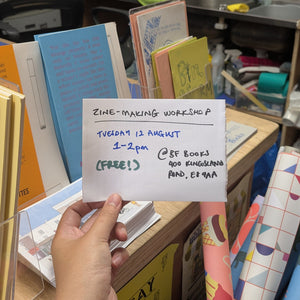 ZINE-MAKING WORKSHOP
TUESDAY 12 AUGUST
1-2pm
(FREE!)
@ BF BOOKS
400 KINGSLAND
ROAD, E8 4AA